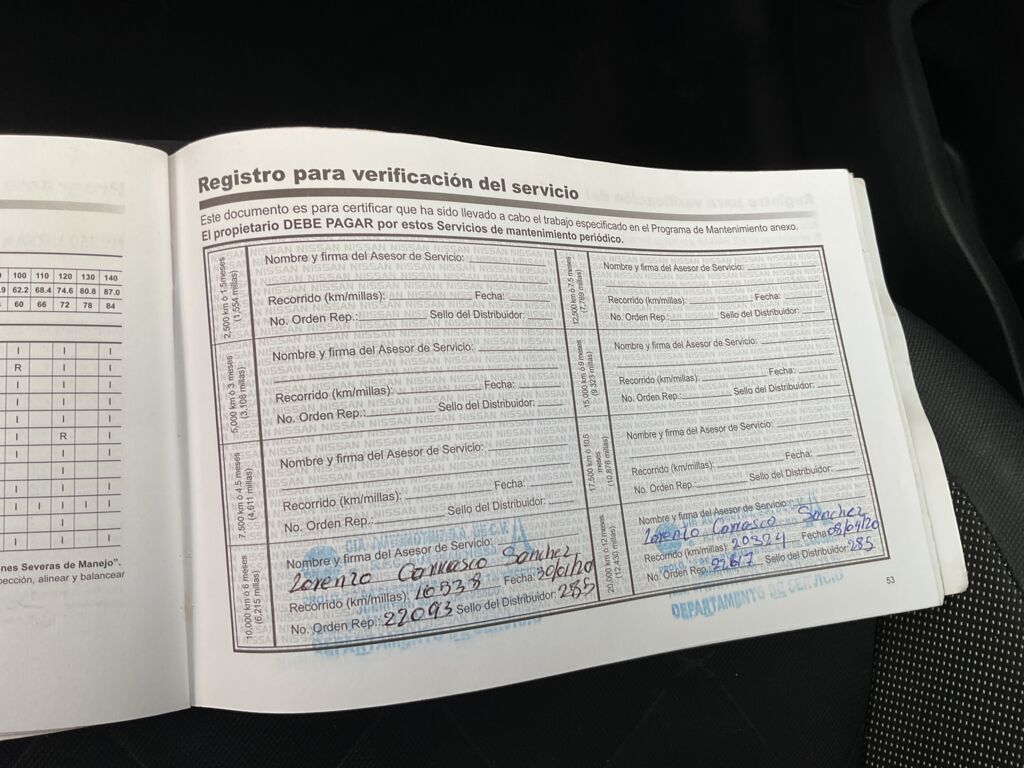 100 110 120 130 140
62.2 68.4 74.6 80.8 87.0
60 66 72 78 84
I I I
R I I
I I I
R
nes Severas de Manejo".
pección, alinear y balancear
Registro para verificación del servicio
Este documento es para certificar que ha sido llevado a cabo el trabajo especificado en el Programa de Mantenimiento anexo.
El propietario DEBE PAGAR por estos Servicios de mantenimiento periódico.
2,500 km ó 1.5 meses
(1,554 millas)
Nombre y firma del Asesor de Servicio:
Recorrido (km/millas): Fecha:
No. Orden Rep.: Sello del Distribuidor:
5,000 km ó 3 meses
(3,108 millas)
Nombre y firma del Asesor de Servicio:
Recorrido (km/millas): Fecha:
No. Orden Rep.: Sello del Distribuidor:
7,500 km ó 4.5 meses
(4,611 millas)
Nombre y firma del Asesor de Servicio:
Recorrido (km/millas): Fecha:
No. Orden Rep.: Sello del Distribuidor:
10,000 km ó 6 meses
(6,215 millas)
Nombre y firma del Asesor de Servicio:
Lorenzo Carrasco Sanchez
Recorrido (km/millas): 16538 Fecha: 30/01/20
No. Orden Rep.: 22093 Sello del Distribuidor: 285
12,500 km ó 7.5 meses
(7,769 millas)
Nombre y firma del Asesor de Servicio:
Recorrido (km/millas): Fecha:
No. Orden Rep.: Sello del Distribuidor:
15,000 km ó 9 meses
(9,323 millas)
Nombre y firma del Asesor de Servicio:
Recorrido (km/millas): Fecha:
No. Orden Rep.: Sello del Distribuidor:
17,500 km ó 10.5
meses
(10,876 millas)
Nombre y firma del Asesor de Servicio:
Recorrido (km/millas): Fecha:
No. Orden Rep.: Sello del Distribuidor:
20,000 km ó 12 meses
(12,430 millas)
Nombre y firma del Asesor de Servicio:
Lorenzo Carrasco Sanchez
Recorrido (km/millas): 20324 Fecha: 08/04/20
No. Orden Rep.: Sello del Distribuidor: 285
DEPARTAMENTO DE SERVICIO
53